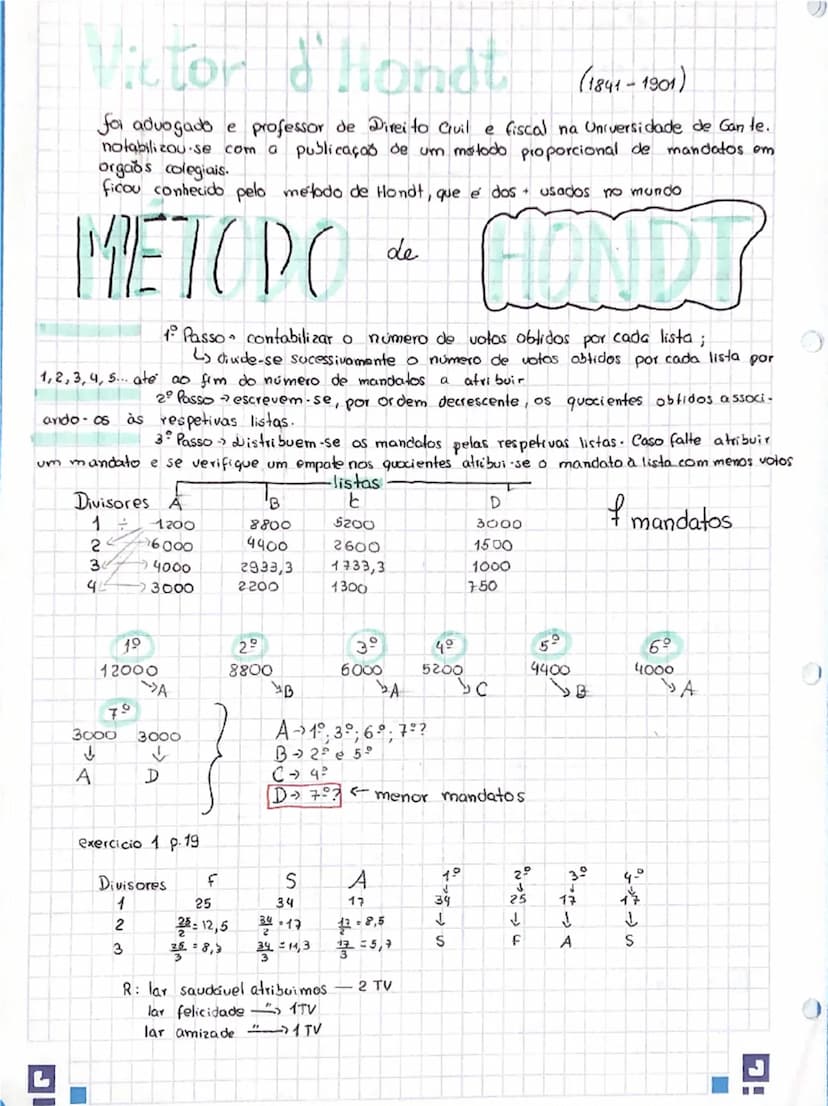 Victor d'Hondt (1841-1901)
foi advogado e professor de Direito Civil e fiscal na Universidade de Gante.
notabilizou-se com a publicaçaõ de um metodo proporcional de mandatos em
orgaõs colegiais.
ficou conhecido pelo método de Hondt, que é dos + usados no mundo
MÉTODO de HONDT
1º Passo → contabilizar o número de votos obtidos por cada lista;
↳ divide-se sucessivamente o número de votos obtidos por cada lista por
1, 2, 3, 4, 5... até ao fim do número de mandatos a atribuir
2º Passo → escrevem-se, por ordem decrescente, os quocientes obtidos associ-
ando-os às respetivas listas.
3º Passo → distribuem-se os mandatos pelas respetivas listas. Caso falte atribuir
um mandato e se verifique um empate nos quocientes atribui-se o mandato à lista com menos votos
listas
Divisores A B C D
1 ÷ 1200 8800 5200 3000
7 mandatos
2 6000 4400 2600 1500
3 → 4000 2933,3 1733,3 1000
4 → 3000 2200 1300 750
1º 2º 3º 4º 5º 6º
12000 8800 6000 5200 4400 4000
→A →B →A →C →B →A
7º
3000 3000
↓ ↓
A D
A → 1º; 3º; 6º; 7º?
B → 2º e 5º
C → 4º
D → 7º? ← menor mandatos
exercicio 1 p.19
Divisores F S A 1º 2º 3º 4º
1 25 34 17 34 25 17 17
2 25/2 = 12,5 34/2 = 17 17/2 = 8,5 ↓ ↓ ↓ ↓
3 25/3 = 8,3 34/3 = 11,3 17/3 = 5,7 S F A S
R: lar saudável atribuimos — 2 TV
lar felicidade —"→ 1TV
lar amizade —"→ 1 TV